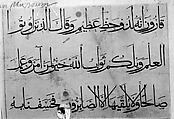 Museum
قارون انه لذو حظ عظيم وقال الذين اوتو
العلم ويلكم ثواب الله خير لمن امن وعمل
صالحا ولا يلقيها الا الصبرون فخسفنا به